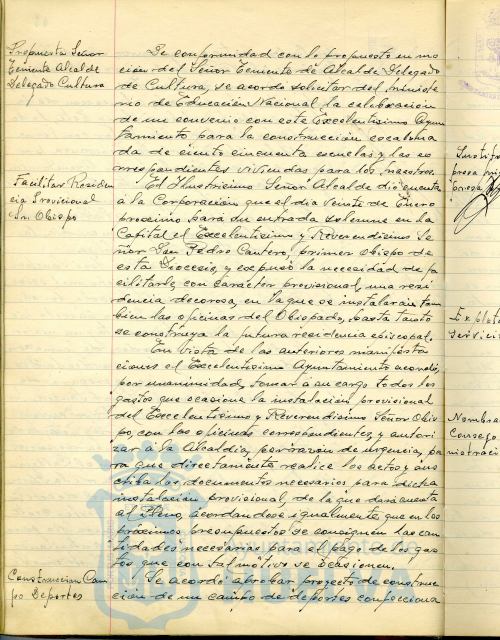 Propuesta Señor
Teniente Alcalde
Delegado Cultura
De conformidad con lo propuesto en mo
ción del Señor Teniente de Alcalde Delegado
de Cultura, se acordó solicitar del Ministe
rio de Educación Nacional la celebración
de un convenio con este Excelentísimo Ayun
tamiento para la construcción escalona
da de ciento cincuenta escuelas y las co
rrespondientes viviendas para los maestros.
Facilitar Residen
cia Provisional
Sr. Obispo
El Ilustrísimo Señor Alcalde dió cuenta
a la Corporación que el día veinte de Enero
próximo hará su entrada solemne en la
Capital el Excelentísimo y Reverendísimo Se
ñor Don Pedro Cantero, primer Obispo de
esta Diócesis, y expuso la necesidad de fa
cilitarle, con carácter provisional, una resi
dencia decorosa, en la que se instalarán tam
bién las oficinas del Obispado, hasta tanto
se construya la futura residencia episcopal.
En vista de las anteriores manifesta
ciones el Excelentísimo Ayuntamiento acordó,
por unanimidad, tomar a su cargo todos los
gastos que ocasione la instalación provisional
del Excelentísimo y Reverendísimo Señor Obis
po, con las oficinas correspondientes, y autori
zar a la Alcaldía, por razón de urgencia, pa
ra que directamente realice los actos y sus
criba los documentos necesarios para dicha
instalación provisional, de la que dará cuenta
al Pleno, acordándose igualmente, que en los
próximos presupuestos se consignen las can
tidades necesarias para el pago de los gas
tos que con tal motivo se ocasionen.
Construcción Cam
po Deportes
Se acordó aprobar proyecto de construc
ción de un campo de deportes confecciona
Explota
servicio
Nombra
Consejo